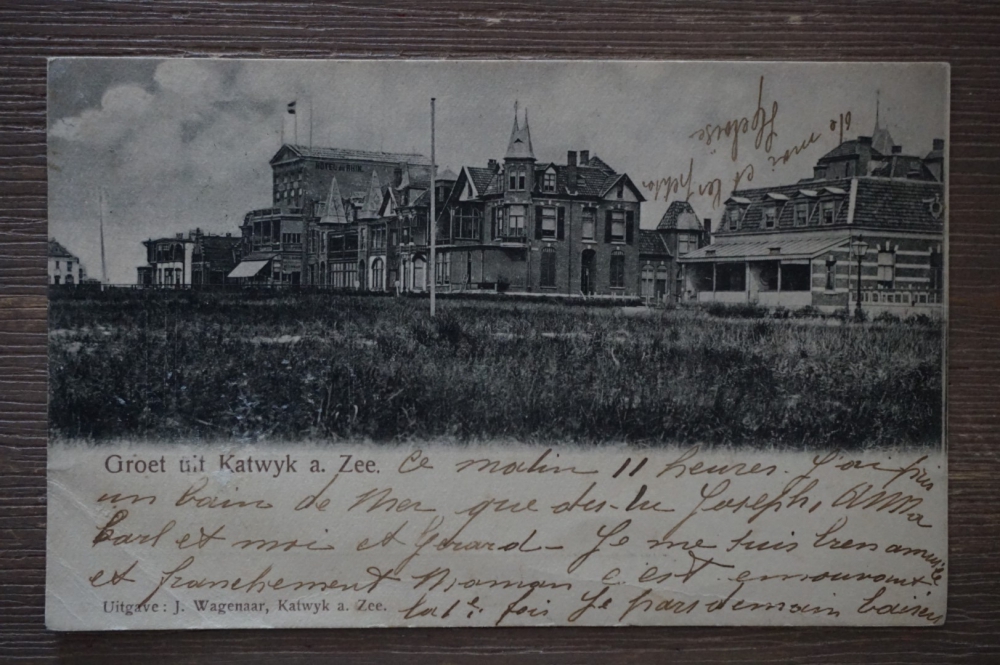 Groet uit Katwyk a. Zee.
Ce matin 11 heures. J'ai pris
un bain de Mer, que dis-tu Joseph, Anna
Karl et moi et Gérard - Je me suis bien amusée
et franchement Maman c'est émouvant
la 1e fois Je pars demain baisers
de moi et
Uitgave: J. Wagenaar, Katwyk a. Zee.